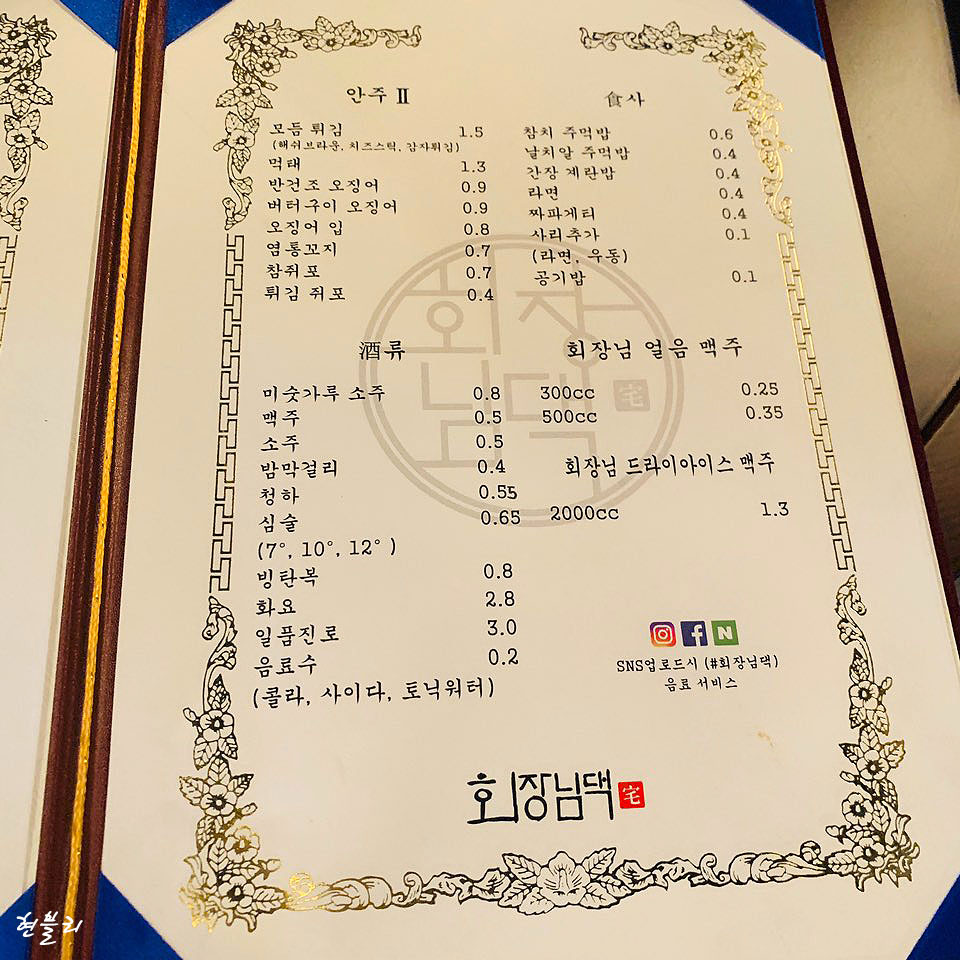 안주 Ⅱ
모듬 튀김 1.5
(해쉬브라운, 치즈스틱, 감자튀김)
먹태 1.3
반건조 오징어 0.9
버터구이 오징어 0.9
오징어 입 0.8
염통꼬지 0.7
참쥐포 0.7
튀김 쥐포 0.4
食사
참치 주먹밥 0.6
날치알 주먹밥 0.4
간장 계란밥 0.4
라면 0.4
짜파게티 0.4
사리추가 0.1
(라면, 우동)
공기밥 0.1
酒류
미숫가루 소주 0.8
맥주 0.5
소주 0.5
밤막걸리 0.4
청하 0.55
심술 0.65
(7°, 10°, 12° )
빙탄복 0.8
화요 2.8
일품진로 3.0
음료수 0.2
(콜라, 사이다, 토닉워터)
회장님 얼음 맥주
300cc 0.25
500cc 0.35
회장님 드라이아이스 맥주
2000cc 1.3
회장
님댁 宅
f N
SNS업로드시 (#회장님댁)
음료 서비스
회장님댁 宅
현블리